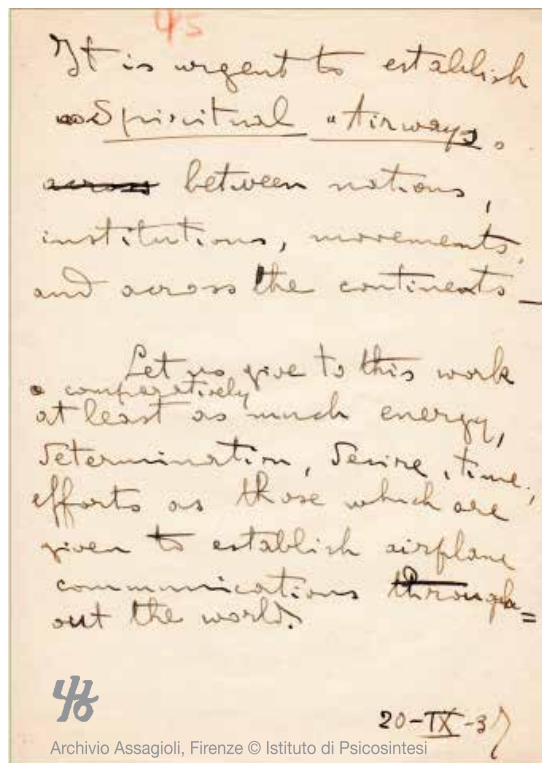 45
It is urgent to establish
Spiritual "Airways"
across between nations,
institutions, movements,
and across the continents—
Let us give to this work
comparatively
at least as much energy,
determination, desire, time,
efforts as those which are
given to establish airplane
communications through=
out the world.
20-IX-37
Archivio Assagioli, Firenze © Istituto di Psicosintesi